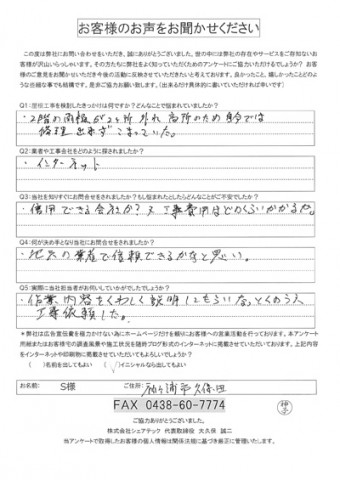 お客様のお声をお聞かせください
この度は弊社にお問い合わせをいただき、誠にありがとうございました。世の中には弊社の存在やサービスをご存知ないお
客様が沢山いらっしゃいます。その方たちに弊社をよく知っていただくためのアンケートにご協力いただけるでしょうか？お客
様のご意見をお聞かせいただき今後の活動に反映させていただきたいと考えております。良かったこと、嬉しかったことどのよ
うな些細な事でも結構です。是非ご協力お願い致します。（出来るだけ具体的に書いていただければ幸いです）
Q1：屋根工事を検討したきっかけは何ですか？どんなことで悩まれていましたか？
・2階の雨樋が2ヶ所外れ高所のため自分では
修理出来ずこまっていた。
Q2：業者や工事会社をどのように探されましたか？
・インターネット
Q3：当社を知りすぐにお問合せをされましたか？もし悩まれたとしたらどんなことがご不安でしたか？
・信用できる会社か？又工事費用はどのくらいかかるか。
Q4：何が決め手となり当社にお問合せをされましたか？
・地元の業者で信頼できるかなと思い。
Q5：実際に当社担当者がお伺いしていかがでしたでしょうか？
・作業内容もくわしく説明してもらいなっとくのうえ
工事依頼した。
＊弊社は広告宣伝費を極力かけない為にホームページだけを頼りにお客様への営業活動を行っております。本アンケート
用紙またはお客様宅の調査風景や施工状況を随時ブログ形式のインターネットに掲載させていただいております。上記内容
をインターネットや印刷物に掲載させていただいてもよろしいでしょうか？
（　）名前を出してもよい　（✓）イニシャルなら出してもよい
お名前：　S様　ご住所：袖ヶ浦市久保田
FAX 0438-60-7774
ご協力ありがとうございました。
株式会社シェアテック 代表取締役 大久保 誠二
当アンケートで取得したお客様の個人情報は関係法規に基づき厳正に管理いたします。